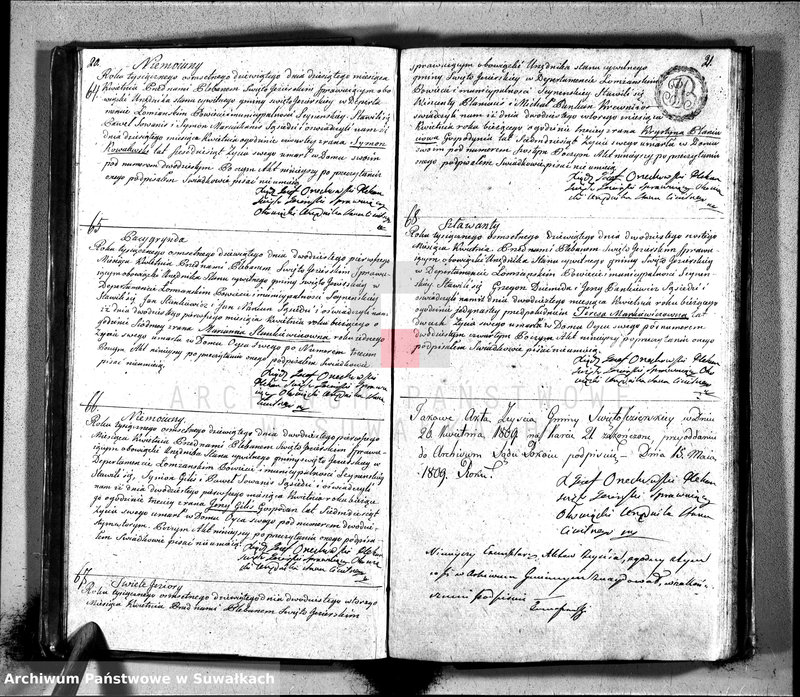 20.
Niemoiuny
64
Roku tysiącznego osmsetnego dziewiątego dnia dziesiątego miesiąca
Kwietnia Przed nami Plebanem Swięto Jezierskim sprawuiącym obo
wiąski Urzednika stanu cywilnego gminy swięto Jezierskiy w Departa
mencie Łomzanskim Powiecie i municypalnosci Seynenskiy Stawili się
Paweł Sowanis i Symon Marcinkanis Sąsiedzi i oswiadczyli nam iż
dnia dziesiątego miesiąca Kwietnia ogodzinie czwartey zrana Symon
Kowalewski lat pięcdziesiąt życia swego umarł w Domu swoim
pod numerem dwudziestym Po czym Akt ninieyszy po przeczytaniu
onego podpisałem Swiadkowie pisać nie umieią
Xiądz Jozef Orzechowski Pleban
Swięto Jezierski Sprawuiący
Obowiąski Urzędnika Stanu Cywilnego
65
Pacygrynda
Roku tysiącznego osmsetnego dziewiątego dnia dwudziestego pierwszego
Miesiąca Kwietnia Przed nami Plebanem Swięto Jezierskim Sprawu
iącym obowiąski Urzednika Stanu cywilnego gminy Swięto Jezierskiy w
Departamencie Łomzanskim Powiecie i municypalnosci Seynenskiy
Stawili się Jan Stankiewicz i Jan Sąsiedzi i oswiadczyli nam
iż dnia dwudziestego pierwszego miesiąca Kwietnia roku bieżącego o
godzinie Siódmey zrana Marianna Stankiewiczowna roku iednego
życia swego umarła w Domu Oyca Swego po Numerem trzecim
Poczym Akt ninieyszy po przeczytaniu onego podpisałem Swiadkowie
pisać nieumieią
Xiądz Jozef Orzechowski
Pleban Swięto Jezierski Sprawu
iący Obowiąski Urzędnika Stanu
Cywilnego
66
Niemoiuny
Roku tysiącznego osmsetnego dziewiątego dnia dwudziestego pierwszego
Miesiąca Kwietnia Przed nami Plebanem Swięto Jezierskim Sprawu
iącym obowiąski Urzednika Stanu cywilnego gminy swięto Jezierskiy w
Departamencie Łomzanskim Powiecie i municypalnosci Seynenskiy
Stawili się, Symon Gilis i Paweł Sowanis Sąsiedzi i oswiadczyli
nam iż dnia dwudziestego pierwszego miesiąca Kwietnia roku bieżące
go ogodzinie trzeciy zrana Jerzy Gilis Gospodarz lat Siedmdziesiąt
życia swego umarł w Domu Oyca swego pod numerem dwudzi
Poczym Akt ninieyszy po przeczytaniu onego podpisa
łem Swiadkowie pisać nieumieią
Xiądz Jozef Orzechowski Pleban
Swięto Jezierski Sprawuiący Obowią
ski Urzędnika Stanu Cywilnego
67
Swięte Jeziory
Roku tysiącznego osmsetnego dziewiątego dnia dwudziestego wtorego
Miesiąca Kwietnia Przed nami Plebanem Swięto Jezierskim
21.
sprawuiącym obowiąski Urzędnika stanu cywilnego
gminy Swięto Jezierskiy w Departamencie Łomżanskim
Powiecie i municypalnosci Seynenskiy Stawili się
Wincenty i Michał
swiadczyli nam iż dnia dwudziestego wtorego miesiąca
Kwietnia roku bieżącego ogodzinie trzeciy zrana Krystyna
Gospodynia lat Siedmdziesiąt życia swego umarła w Domu
swoim pod numerem Szostym Poczym Akt ninieyszy po przeczytaniu
onego podpisałem Swiadkowie pisać nie umieią
Xiądz Jozef Orzechowski Pleban
Swięto Jezierski Sprawuiący Obowią
ski Urzędnika Stanu Cywilnego
68
Sztawanty
Roku tysiącznego osmsetnego dziewiątego dnia dwudziestego
Miesiąca Kwietnia Przed nami Plebanem Swięto Jezierskim Sprawu
iącym obowiąski Urzędnika Stanu cywilnego gminy Swięto Jezierskiy
w Departamencie Łomzanskim Powiecie i municypalnosci Seynen
skiy Stawili się Gregor i Jerzy Pankiewicz Sąsiedzi i
oswiadczyli nam iż dnia dwudziestego miesiąca Kwietnia roku bieżącego
ogodzinie jedynasty przedpołudniem Teresa Markiewiczowna lat
dwuch życia swego umarła w Domu Oyca swego pod numerem
dwudziestym czwartym Poczym Akt ninieyszy poprzeczytaniu onego
podpisałem Swiadkowie pisać nieumieią
Xiądz Jozef Orzechowski Pleban
Swięto Jezierski Sprawuiący Obo
wiąski Urzędnika Stanu Cywilnego
Takowe Akta Zeyscia Gminy Swiętojezierskiey w dniu
26 kwietnia 1809 na karcie 21 zakonczone, przy oddaniu
do Archiwum Sądu Pokoiu podpisuię – Dnia 15 Maia
1809. Roku
X Jozef Orzechowski Pleban
Swięto Jezierski Sprawuiący
Obowiąski Urzędnika Stanu
Cywilnego
Ninieyszy Exemplarz Aktow Zeyscia, zgodny z
w Archiwum Gminnym znayduiącym
podpisuię
ARCHIWUM PAŃSTWOWE
W SUWAŁKACH
Archiwum Państwowe w Suwałkach